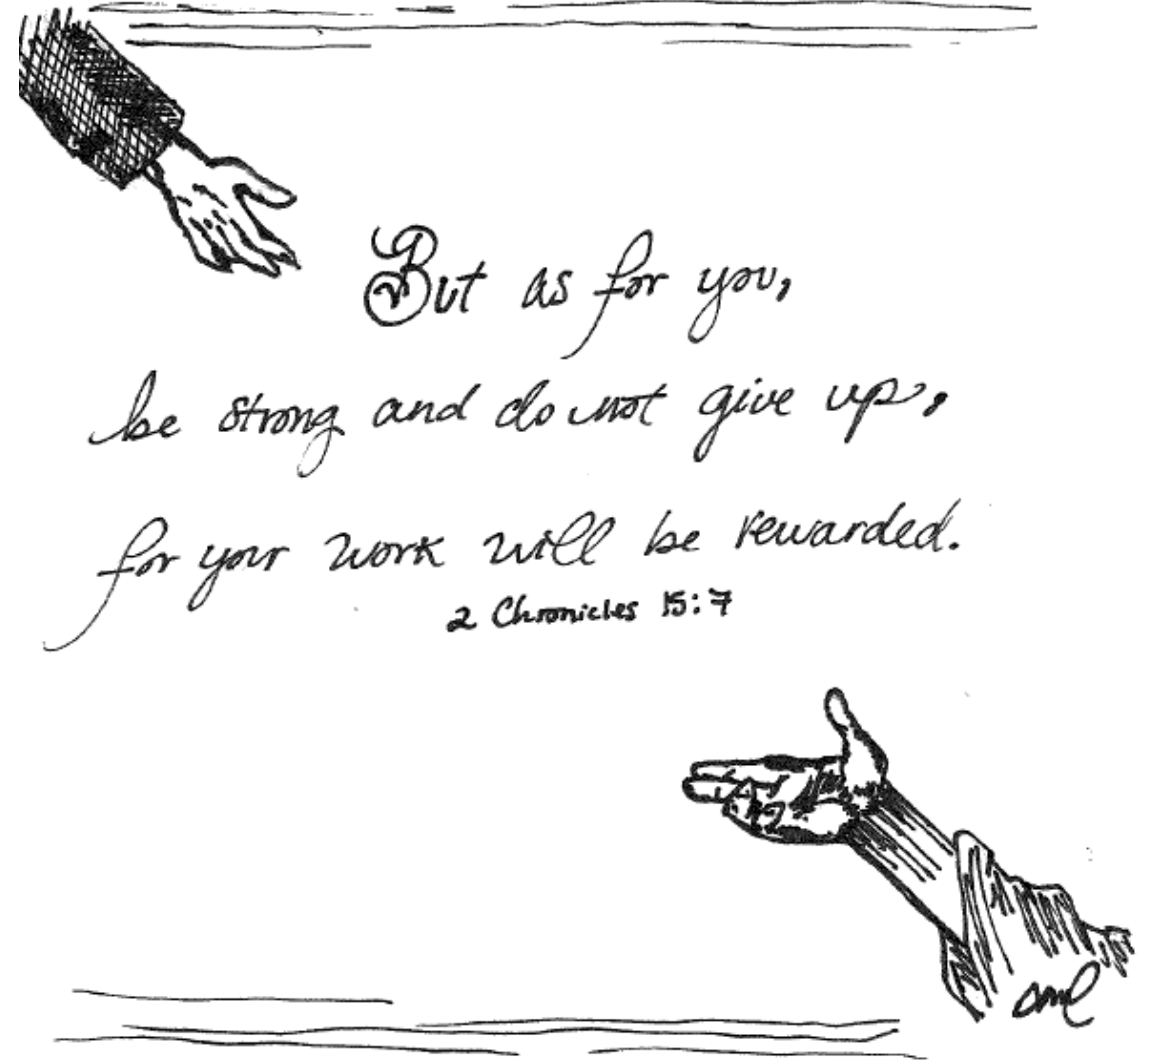 But as for you,
be strong and do not give up,
for your work will be rewarded.
2 Chronicles 15:7